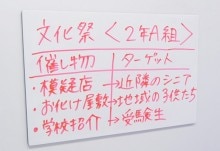 文化祭〈2年A組〉
催し物 ターゲット
・模疑店→近隣のシニア
・お化け屋敷→地域の子供たち
・学校紹介→受験生